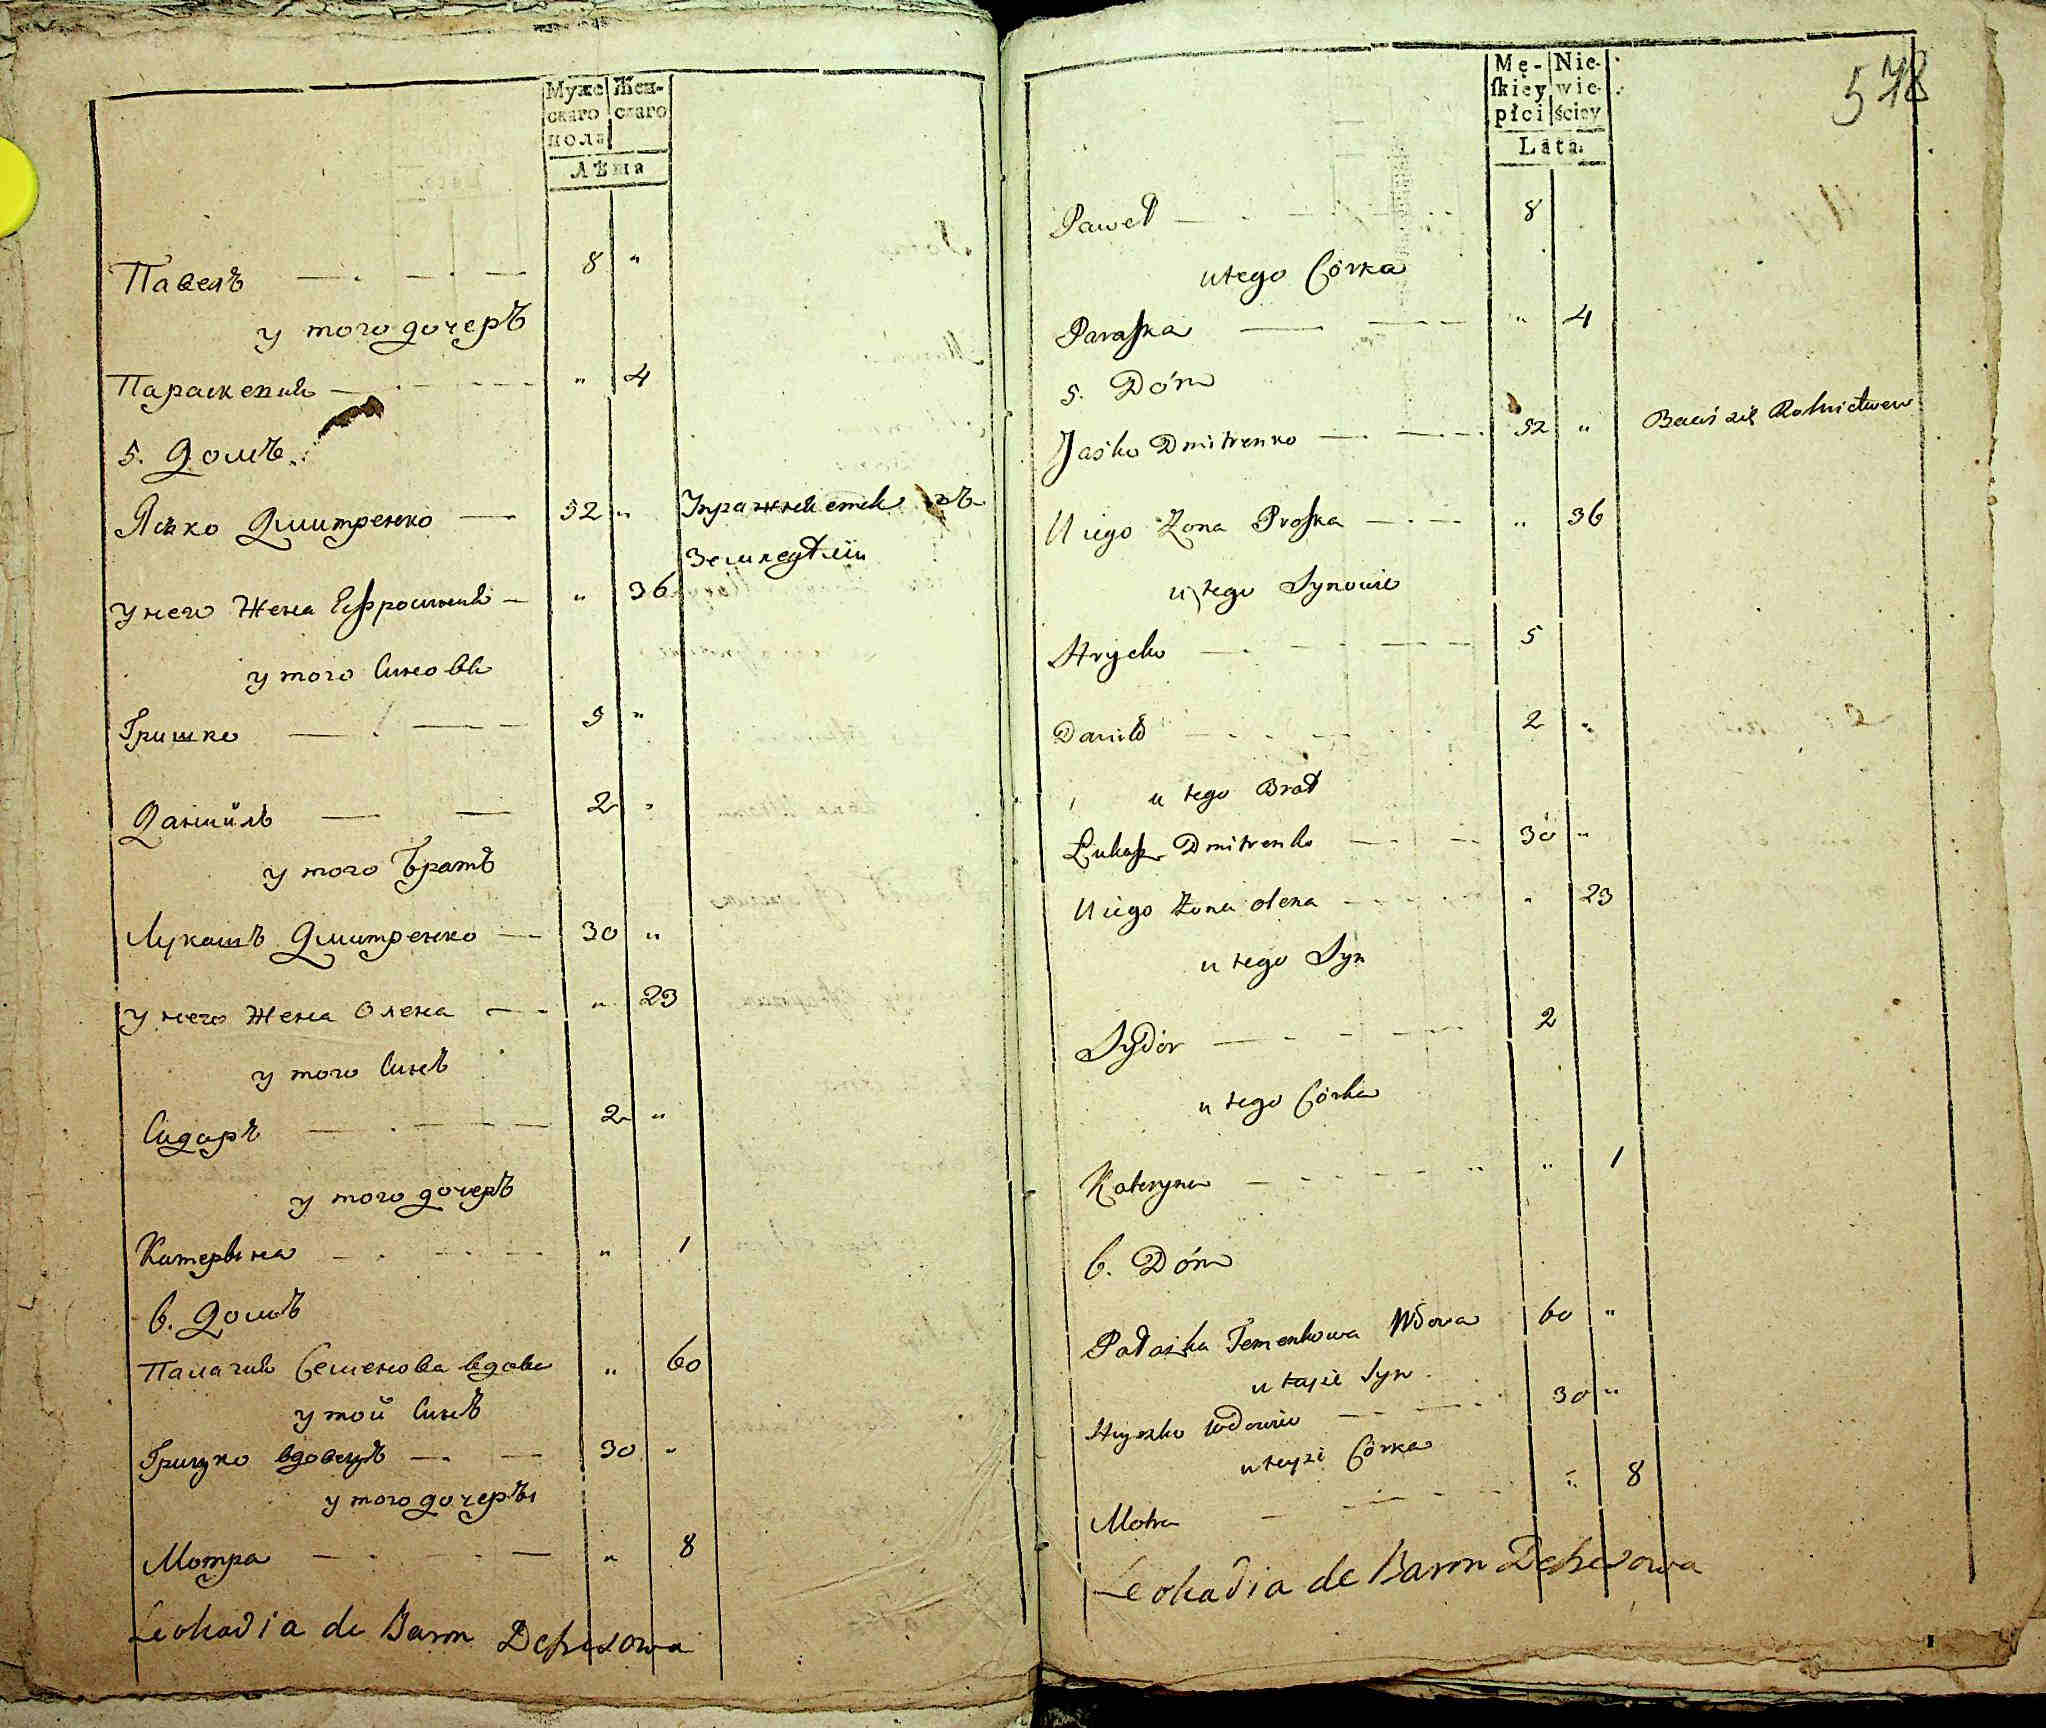 Муже Жен-
скаго скаго
пола
Лѣта
Павелъ 8 "
у того дочерЪ
Параскевия " 4
5. домъ.
Ясько Дмитренко 52 " Упражняется въ
Земледѣліи
у него Жена Ефросиния " 36
у того Синовѣ
Гришко 5 "
Даниилъ 2 "
у того Братъ
Лукашъ Дмитренко 30 "
у него Жена Олена " 23
у того Синъ
Сидаръ 2 "
у того дочерЪ
Катерына " 1
6. домъ
Палагия Семенова вдова " 60
у той Синъ
Грицко вдовецъ 30 "
у того дочерЪ
Мотра " 8
Leokadia de Baron
578
Mę- Nie-
ſkiey wie-
płci ściey
Lata.
Paweł 8
u tego Córka
Paraſka " 4
5. Dóm
Jaśko Dmitrenko 52 " Bawi się Rolnictwem
U iego Żona Proſka " 36
u tego Synowie
Hrycko 5
Daniło 2 "
u tego Brat
Łukaſz Dmitrenko 30 "
U iego Żona Olena " 23
u tego Syn
Sydor 2
u tego Córka
Kateryna " 1
6. Dóm
Pałaszka Wdowa 60 "
u Syn
Hryszko Wdowiec 30 "
Córka
Motra " 8
Leokadia de Baron